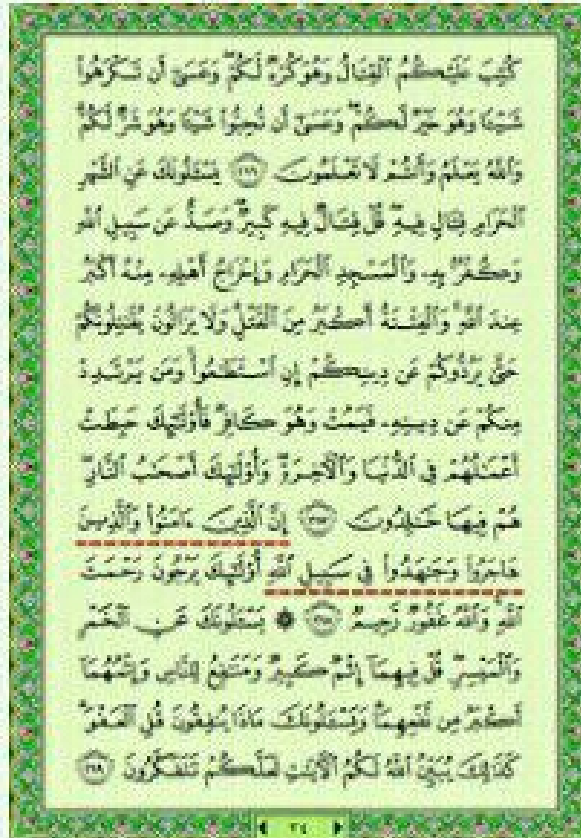 كُتِبَ عَلَيْكُمُ ٱلْقِتَالُ وَهُوَ كُرْهٌ لَّكُمْ وَعَسَىٰٓ أَن تَكْرَهُوا۟
شَيْـًٔا وَهُوَ خَيْرٌ لَّكُمْ وَعَسَىٰٓ أَن تُحِبُّوا۟ شَيْـًٔا وَهُوَ شَرٌّ لَّكُمْ
وَٱللَّهُ يَعْلَمُ وَأَنتُمْ لَا تَعْلَمُونَ ٢١٦ يَسْـَٔلُونَكَ عَنِ ٱلشَّهْرِ
ٱلْحَرَامِ قِتَالٍ فِيهِ قُلْ قِتَالٌ فِيهِ كَبِيرٌ وَصَدٌّ عَن سَبِيلِ ٱللَّهِ
وَكُفْرٌۢ بِهِۦ وَٱلْمَسْجِدِ ٱلْحَرَامِ وَإِخْرَاجُ أَهْلِهِۦ مِنْهُ أَكْبَرُ
عِندَ ٱللَّهِ وَٱلْفِتْنَةُ أَكْبَرُ مِنَ ٱلْقَتْلِ وَلَا يَزَالُونَ يُقَـٰتِلُونَكُمْ
حَتَّىٰ يَرُدُّوكُمْ عَن دِينِكُمْ إِنِ ٱسْتَطَـٰعُوا۟ وَمَن يَرْتَدِدْ
مِنكُمْ عَن دِينِهِۦ فَيَمُتْ وَهُوَ كَافِرٌ فَأُو۟لَـٰٓئِكَ حَبِطَتْ
أَعْمَـٰلُهُمْ فِى ٱلدُّنْيَا وَٱلْـَٔاخِرَةِ وَأُو۟لَـٰٓئِكَ أَصْحَـٰبُ ٱلنَّارِ
هُمْ فِيهَا خَـٰلِدُونَ ٢١٧ إِنَّ ٱلَّذِينَ ءَامَنُوا۟ وَٱلَّذِينَ
هَاجَرُوا۟ وَجَـٰهَدُوا۟ فِى سَبِيلِ ٱللَّهِ أُو۟لَـٰٓئِكَ يَرْجُونَ رَحْمَتَ
ٱللَّهِ وَٱللَّهُ غَفُورٌ رَّحِيمٌ ٢١٨ ۞ يَسْـَٔلُونَكَ عَنِ ٱلْخَمْرِ
وَٱلْمَيْسِرِ قُلْ فِيهِمَآ إِثْمٌ كَبِيرٌ وَمَنَـٰفِعُ لِلنَّاسِ وَإِثْمُهُمَآ
أَكْبَرُ مِن نَّفْعِهِمَا وَيَسْـَٔلُونَكَ مَاذَا يُنفِقُونَ قُلِ ٱلْعَفْوَ
كَذَٰلِكَ يُبَيِّنُ ٱللَّهُ لَكُمُ ٱلْـَٔايَـٰتِ لَعَلَّكُمْ تَتَفَكَّرُونَ ٢١٩
٣٤